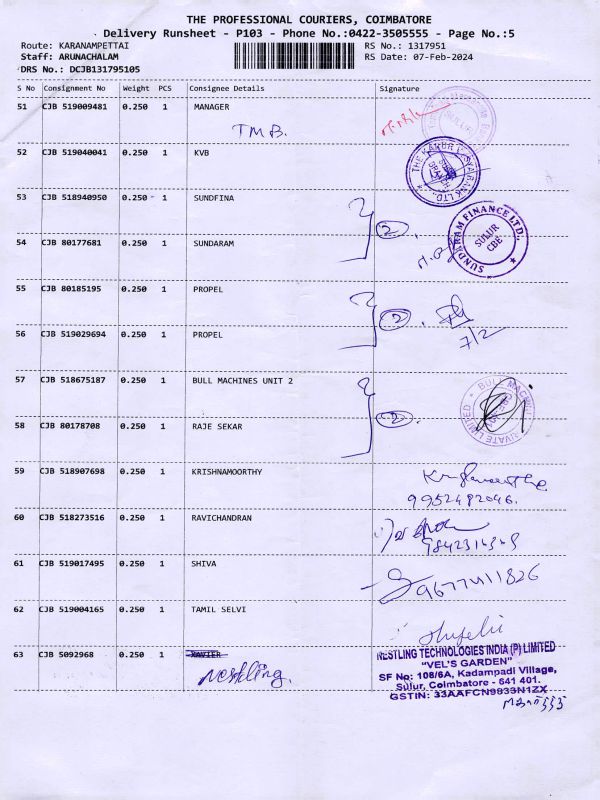 THE PROFESSIONAL COURIERS, COIMBATORE
Delivery Runsheet - P103 - Phone No.:0422-3505555 - Page No.:5
Route: KARANAMPETTAI RS No.: 1317951
Staff: ARUNACHALAM RS Date: 07-Feb-2024
DRS No.: DCJB131795105
S No Consignment No Weight PCS Consignee Details Signature
51 CJB 519009481 0.250 1 MANAGER
TMB.
52 CJB 519040041 0.250 1 KVB
THE KARUR VYSYA BANK LTD.,
53 CJB 518940950 0.250 1 SUNDFINA
2
SUNDARAM FINANCE LTD.,
SULUR
CBE
54 CJB 80177681 0.250 1 SUNDARAM
55 CJB 80185195 0.250 1 PROPEL
2
7/2
56 CJB 519029694 0.250 1 PROPEL
57 CJB 518675187 0.250 1 BULL MACHINES UNIT 2
2
58 CJB 80178708 0.250 1 RAJE SEKAR
59 CJB 518907698 0.250 1 KRISHNAMOORTHY
9952482046.
60 CJB 518273516 0.250 1 RAVICHANDRAN
61 CJB 519017495 0.250 1 SHIVA
9677411826
62 CJB 519004165 0.250 1 TAMIL SELVI
63 CJB 5092968 0.250 1 XAVIER
Nestling.
NESTLING TECHNOLOGIES INDIA (P) LIMITED
"VEL'S GARDEN"
SF No: 108/6A, Kadampadi Village,
Sulur, Coimbatore - 641 401.
GSTIN: 33AAFCN9833N1ZX